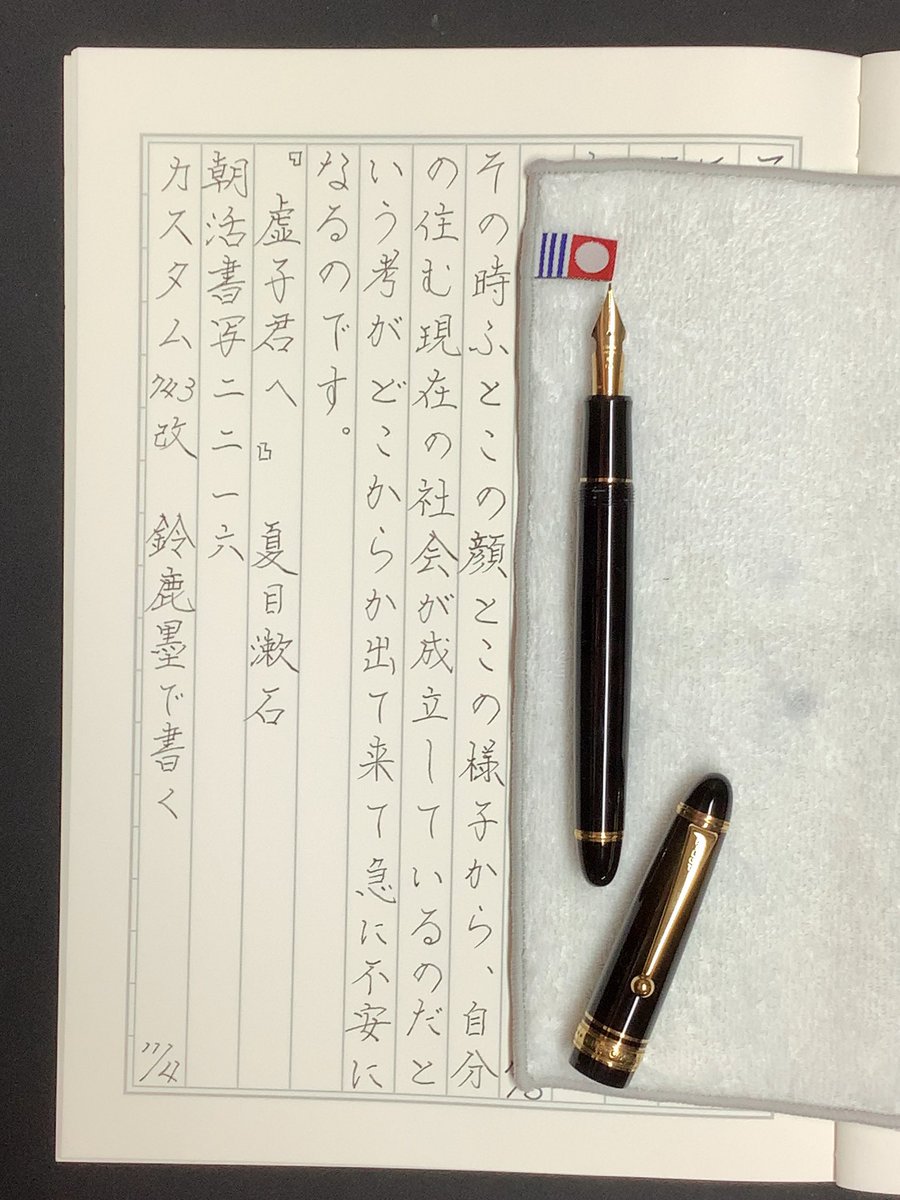 その時ふとこの顔とこの様子から、自分
の住む現在の社会が成立しているのだと
いう考がどこからか出て来て急に不安に
なるのです。
『虚子君へ』 夏目漱石
朝活書写二二一六
カスタム743改 鈴鹿墨で書く